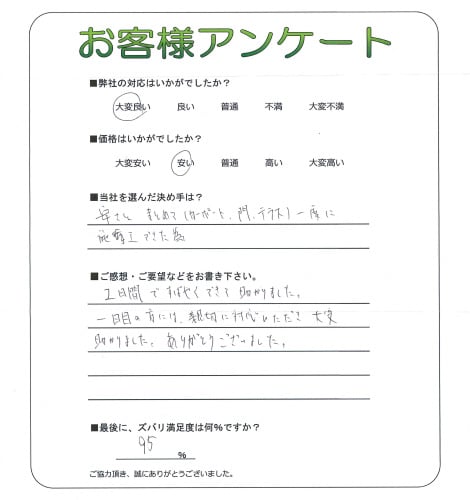 お客様アンケート
■弊社の対応はいかがでしたか？
大変良い 良い 普通 不満 大変不満
■価格はいかがでしたか？
大変安い 安い 普通 高い 大変高い
■当社を選んだ決め手は？
まとめて (カーポート、門、テラス) 一度に
施工できた為
■ご感想・ご要望などをお書き下さい。
2日間ですばやくできて助かりました。
一日目の方には、親切に対応いただき大変
助かりました。ありがとうございました。
■最後に、ズバリ満足度は何%ですか？
95 %
ご協力頂き、誠にありがとうございました。